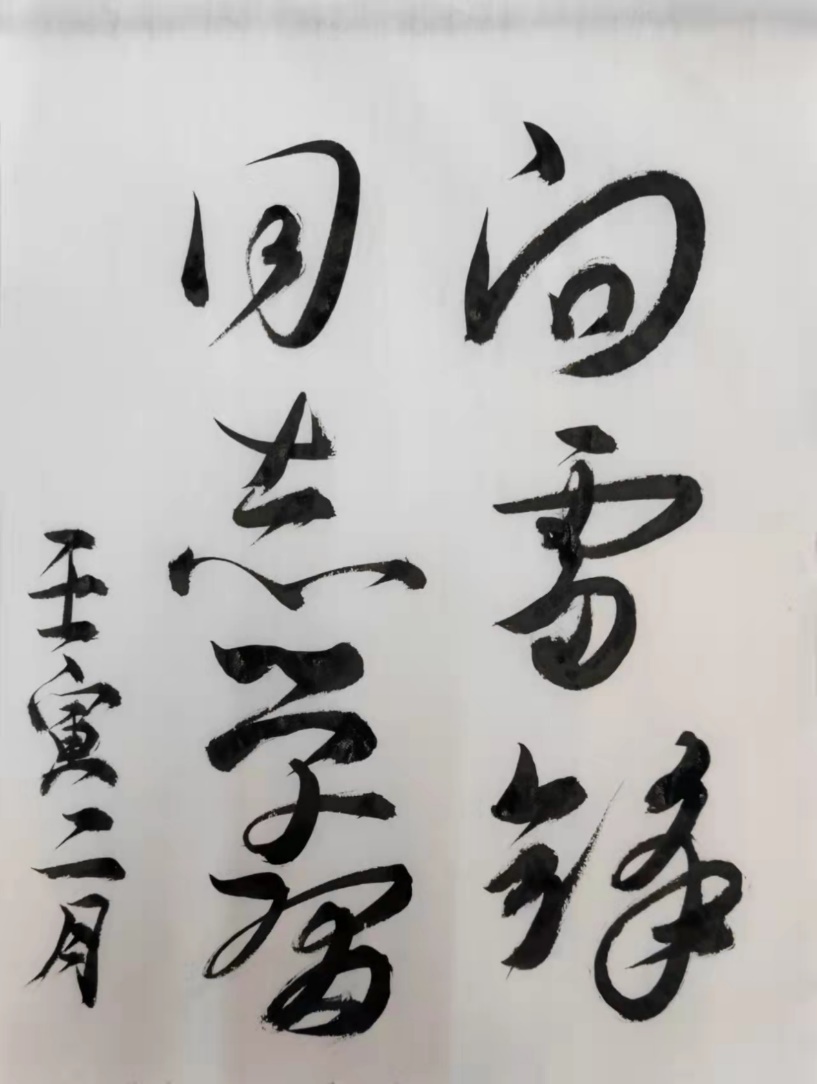 向雷锋
同志学习
壬寅二月